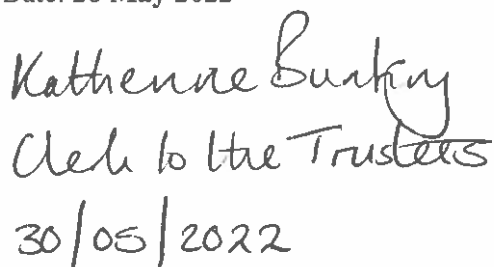 Katherine
Clerk to the Trustees
30/05/2022